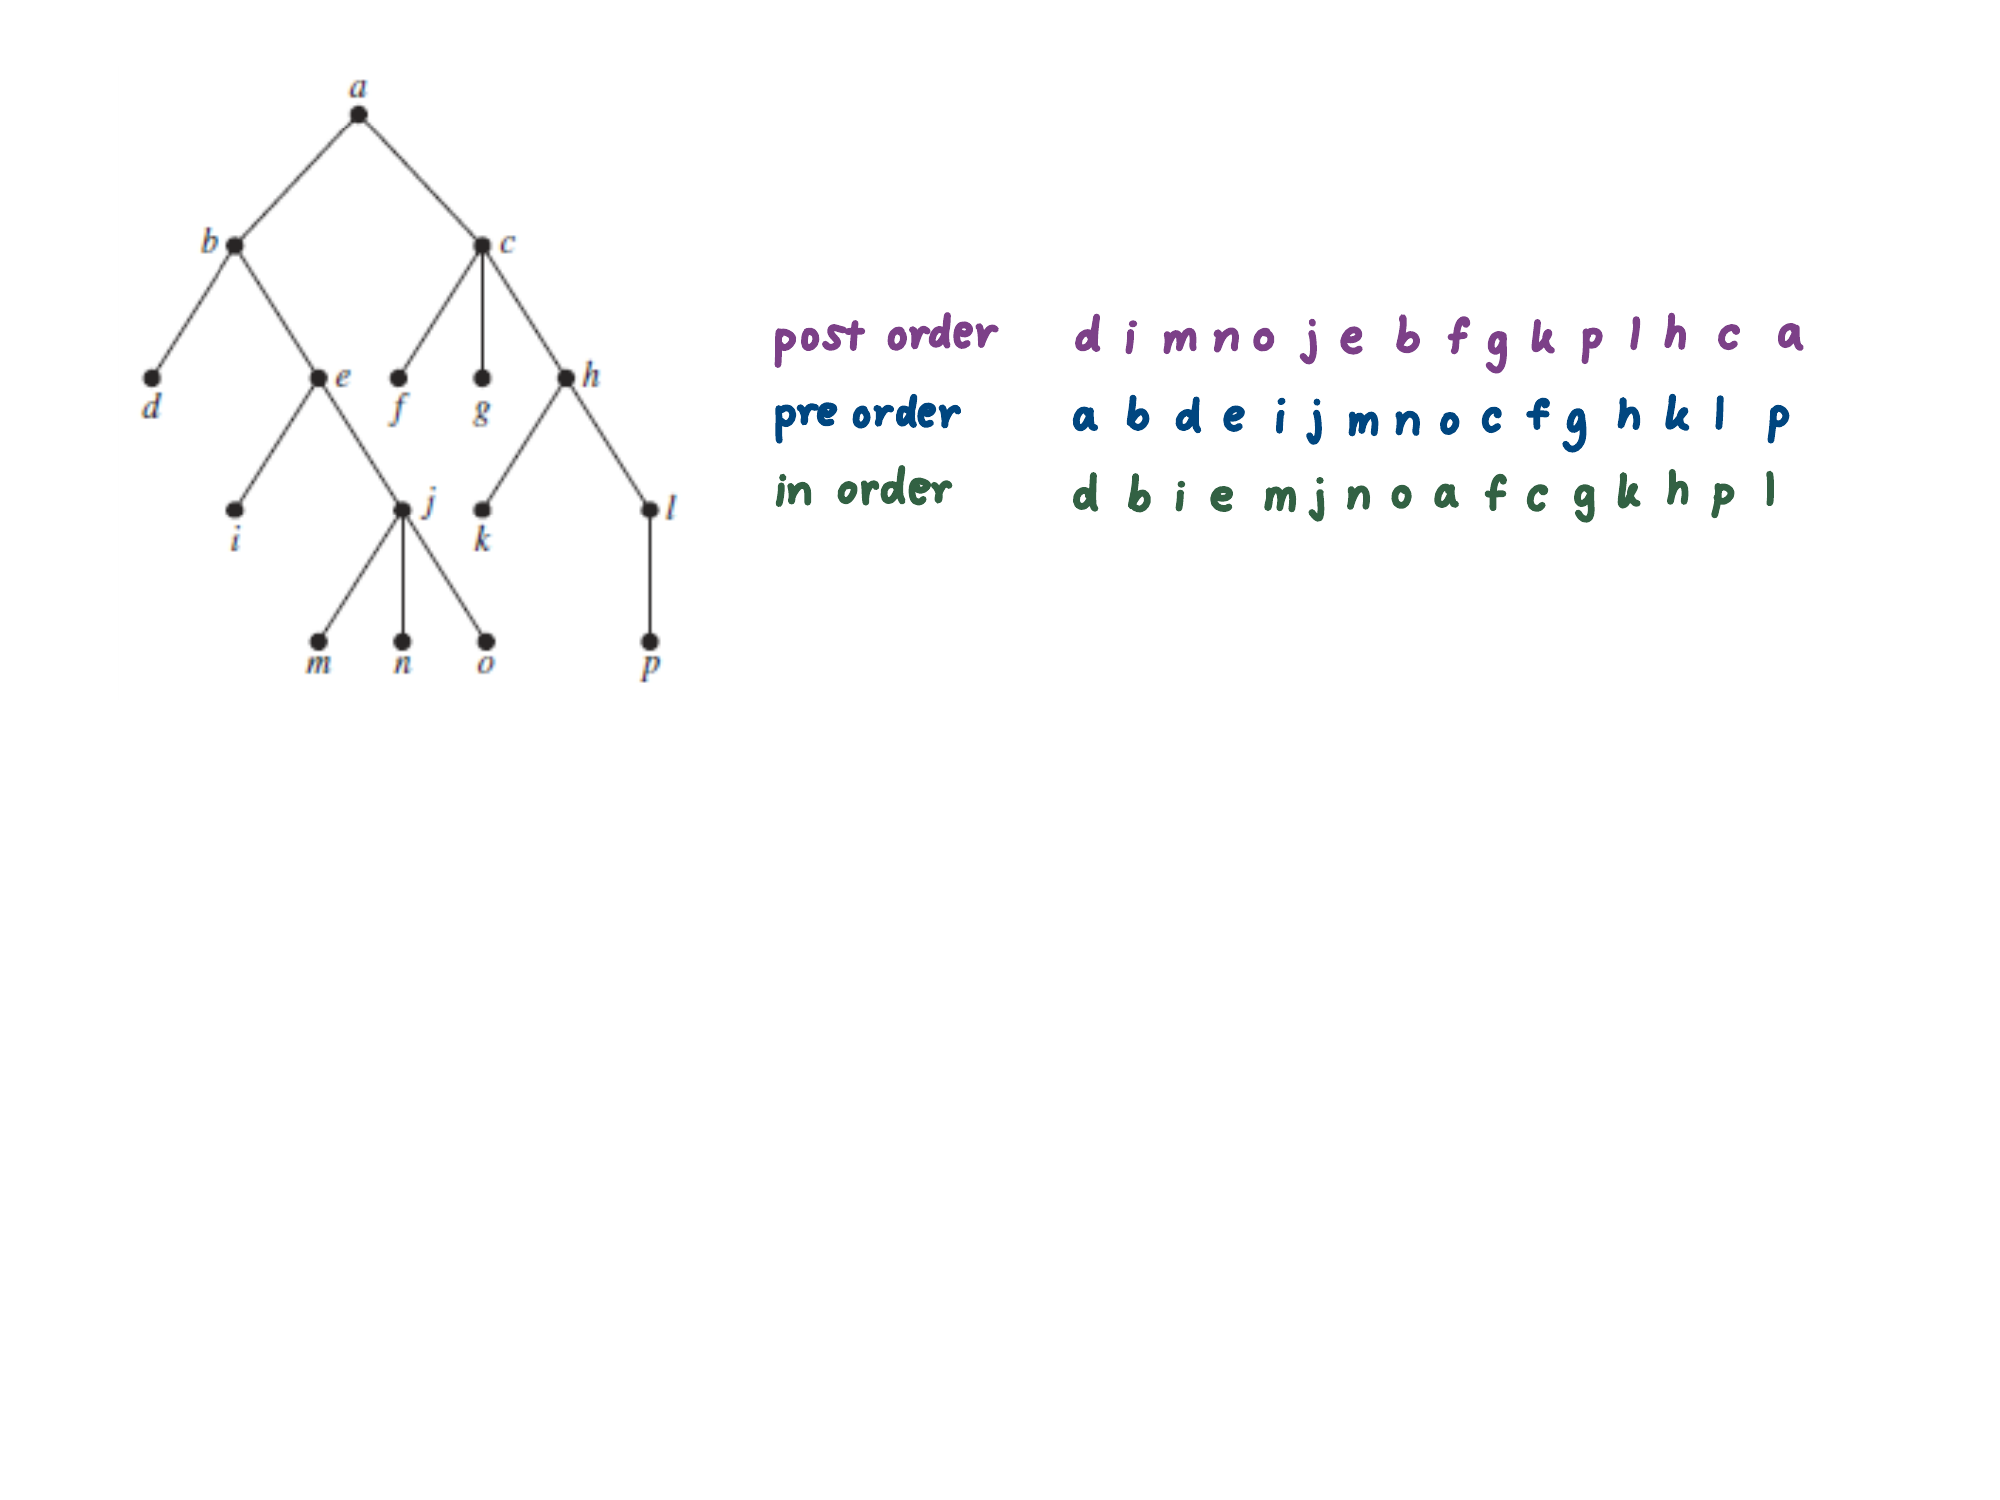 a
b c
d e f g h
i j k l
m n o p
post order d i m n o j e b f g k p l h c a
pre order a b d e i j m n o c f g h k l p
in order d b i e m j n o a f c g k h p l